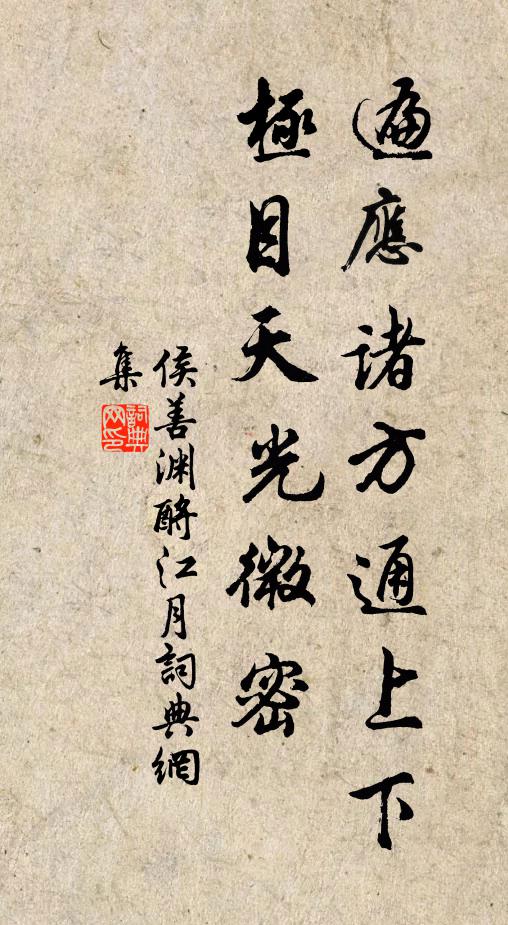 遍應諸方通上下
極目天光微密
侯善渊酹江月詞典網
集
詞典网印